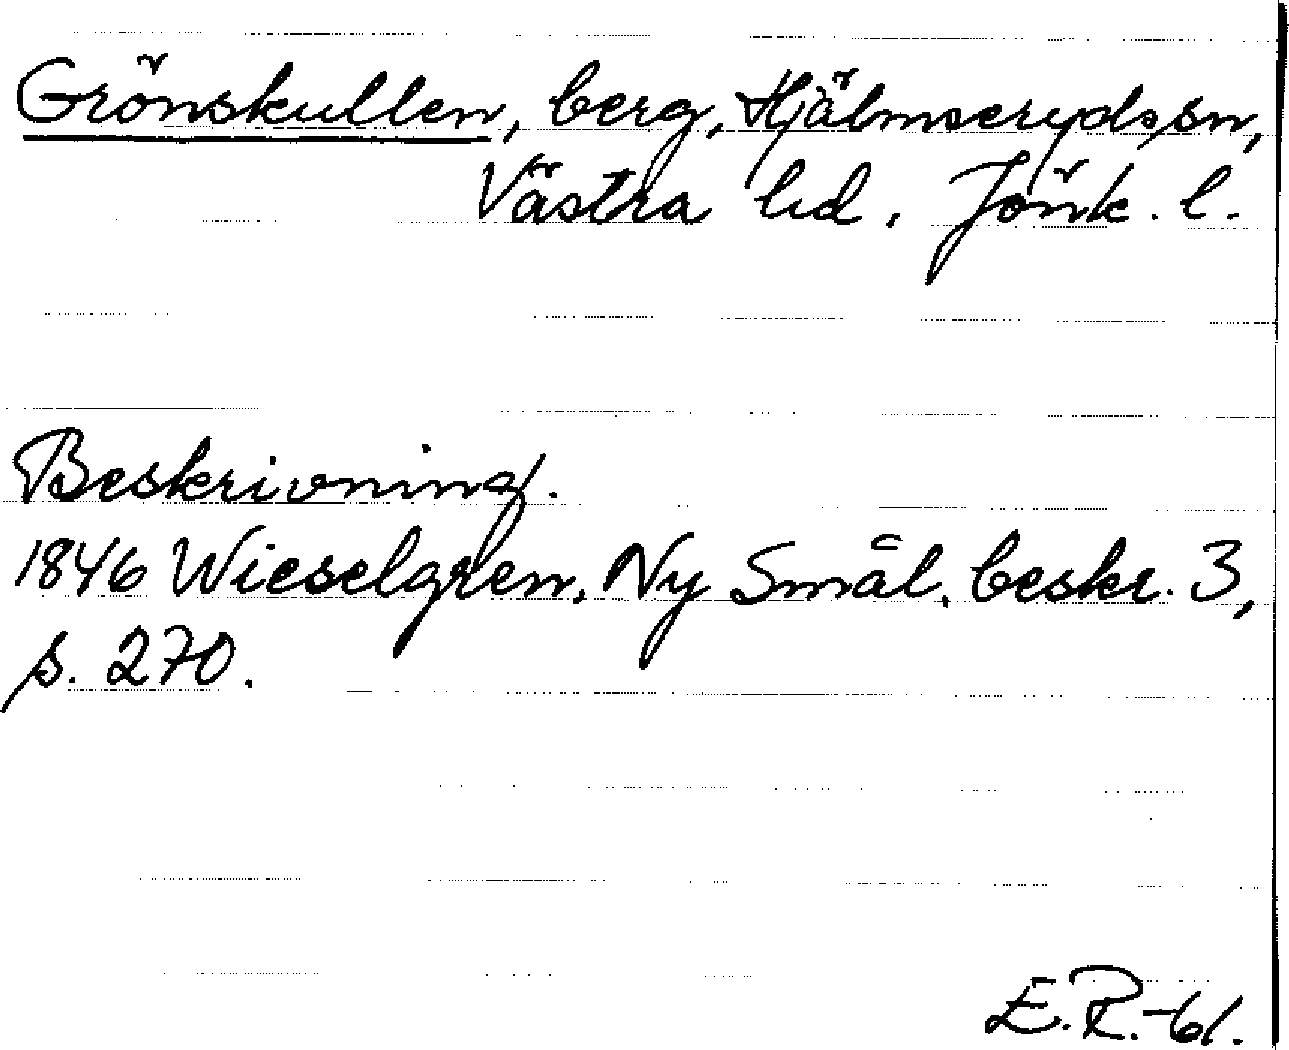 Grönskullen, berg, Hjälmseryds sn,
Västra hd, Jönk. l.
Beskrivning.
1846 Wieselgren, Ny Smål. beskr. 3,
s. 270.
E.R.-61.